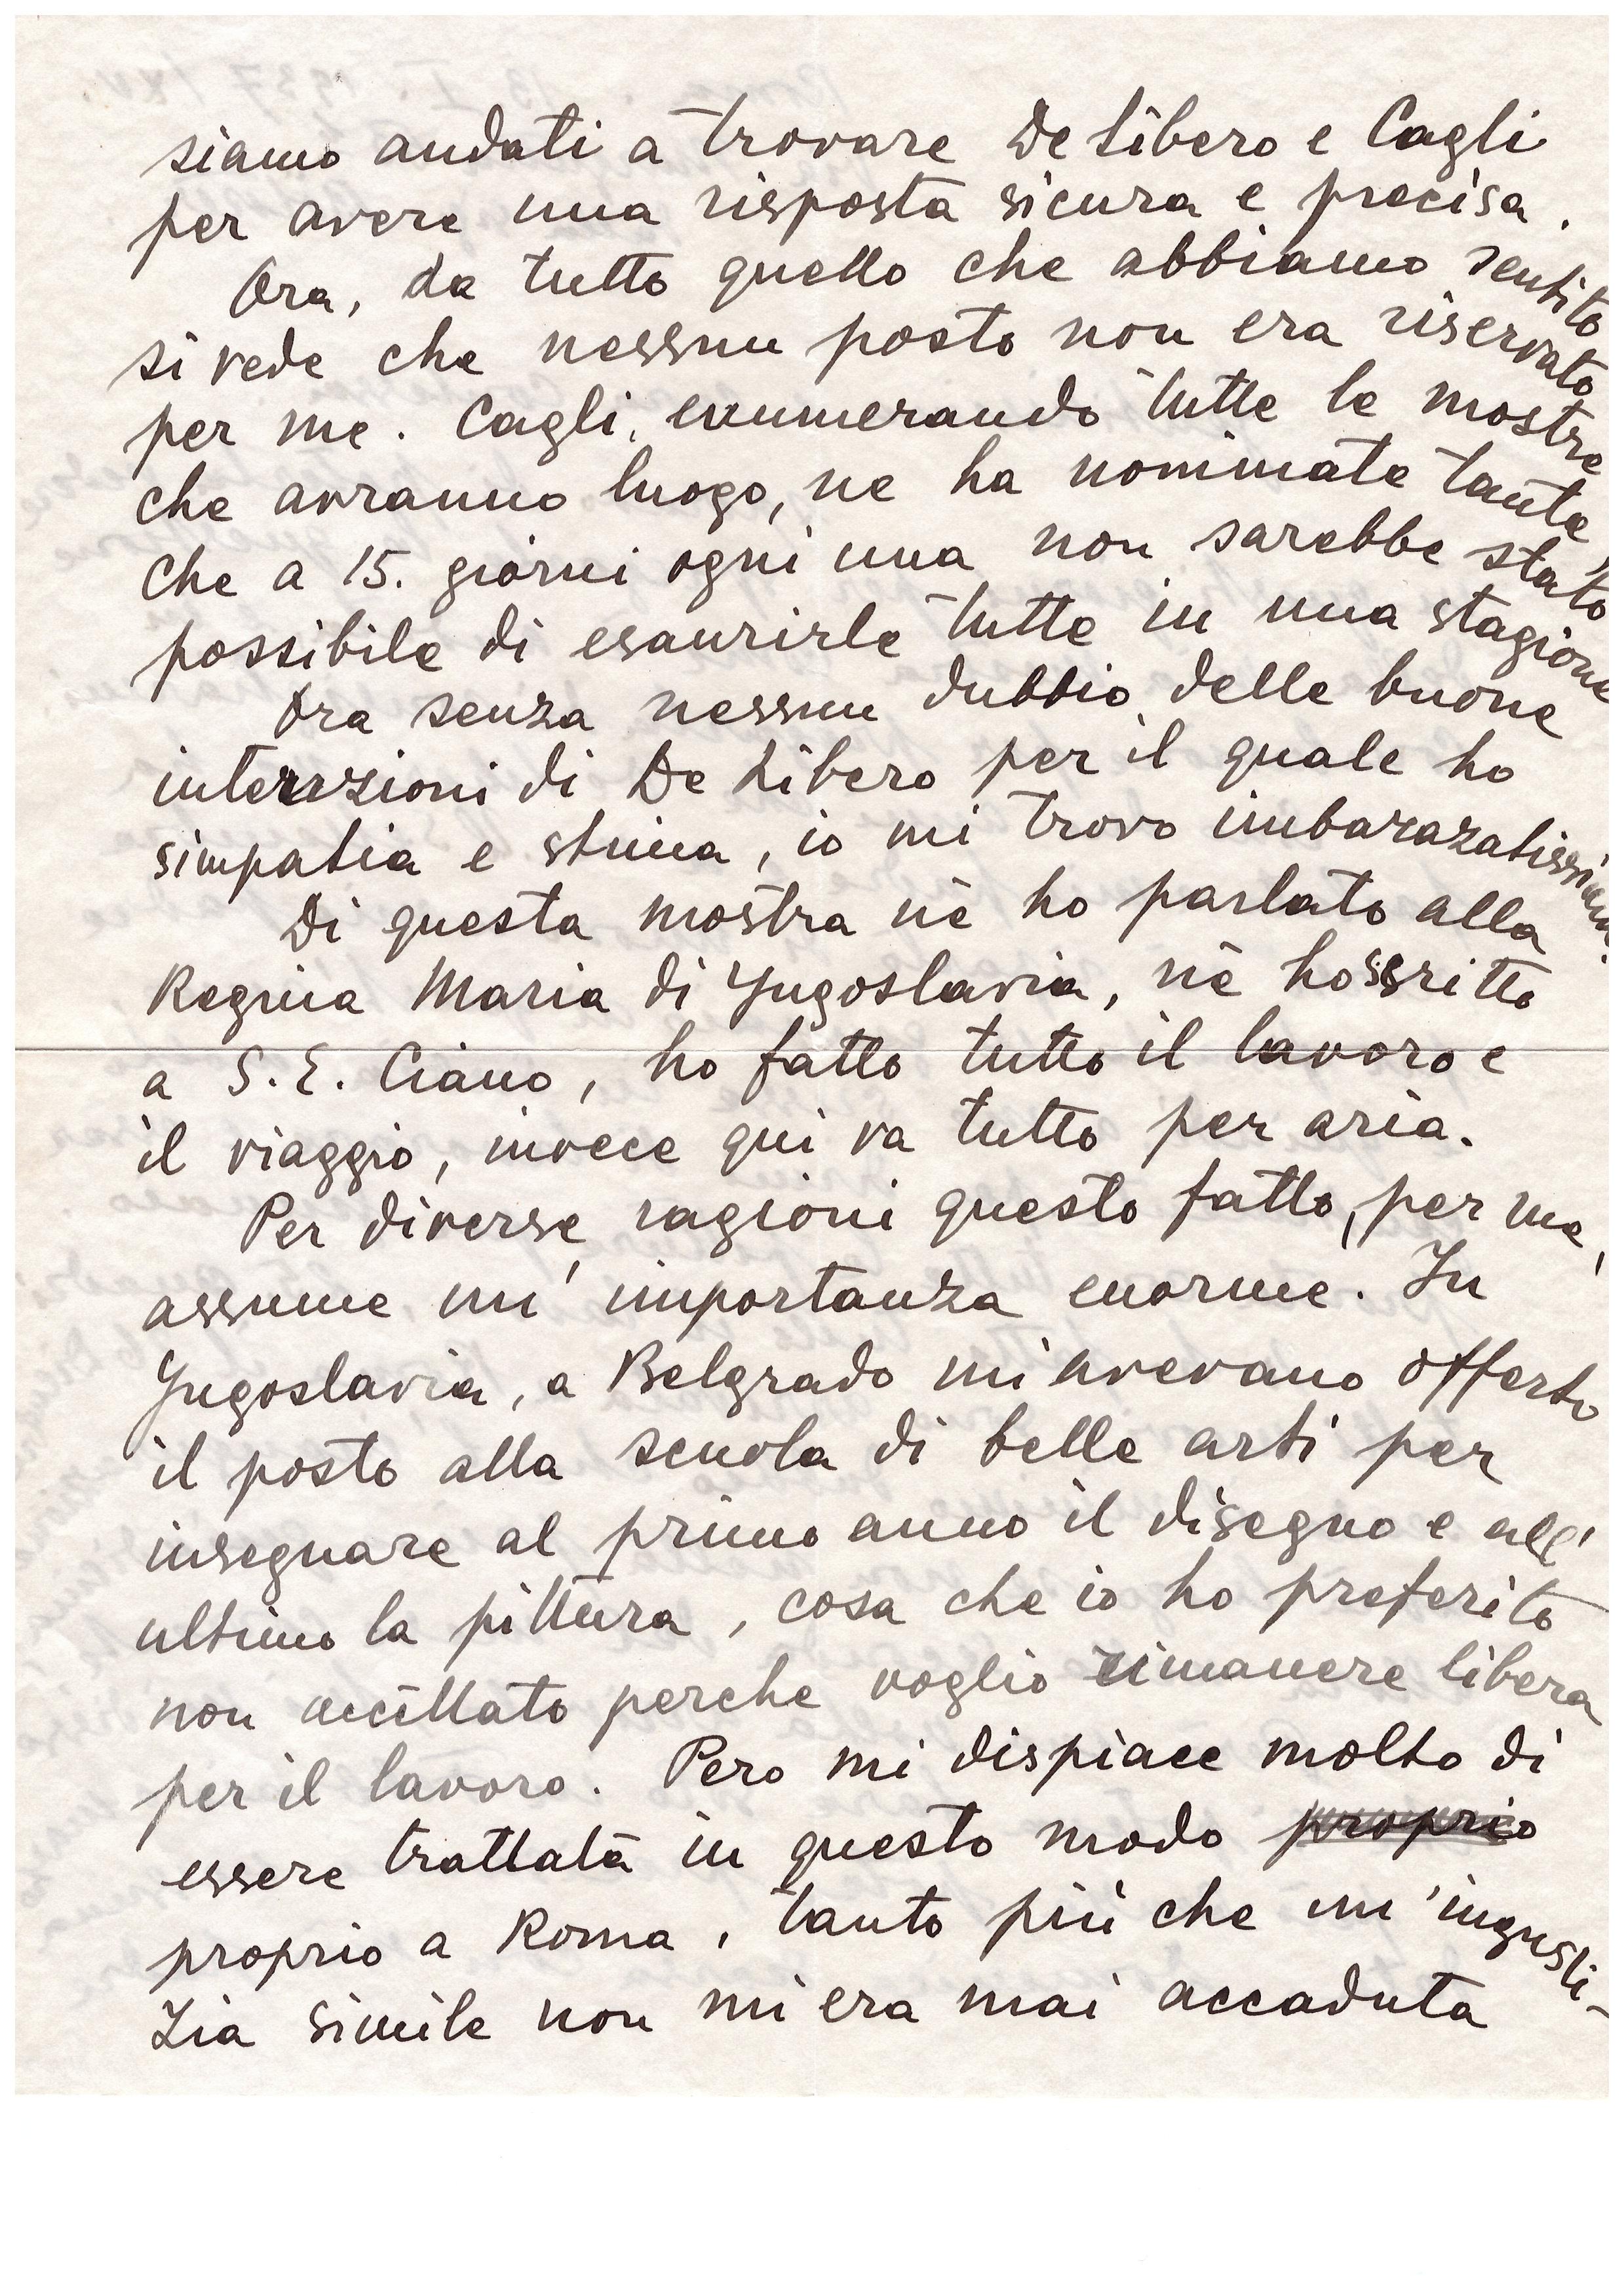 siamo andati a trovare De Libero e Cagli
per avere una risposta sicura e precisa.
Ora, da tutto quello che abbiamo sentito
si vede che nessun posto non era riservato
per me. Cagli, enumerando tutte le mostre
che avranno luogo, ne ha nominate tante
che a 15. giorni ogni una non sarebbe stato
possibile di esaurirle tutte in una stagione
Ora senza nessun dubbio delle buone
intenzioni di De Libero per il quale ho
simpatia e stima, io mi trovo imbarazatissima.
Di questa mostra nè ho parlato alla
Regina Maria di Yugoslavia, nè ho scritto
a S. E. Ciano, ho fatto tutto il lavoro e
il viaggio, invece qui va tutto per aria.
Per diverse ragioni questo fatto, per me,
assume un' importanza enorme. In
Yugoslavia, a Belgrado mi avevano offerto
il posto alla scuola di belle arti per
insegnare al primo anno il disegno e all'
ultimo la pittura, cosa che io ho preferito
non accettato perche voglio rimanere libera
per il lavoro. Pero mi dispiace molto di
essere trattata in questo modo proprio
proprio a Roma, tanto più che un' ingusti-
zia simile non mi era mai accaduta